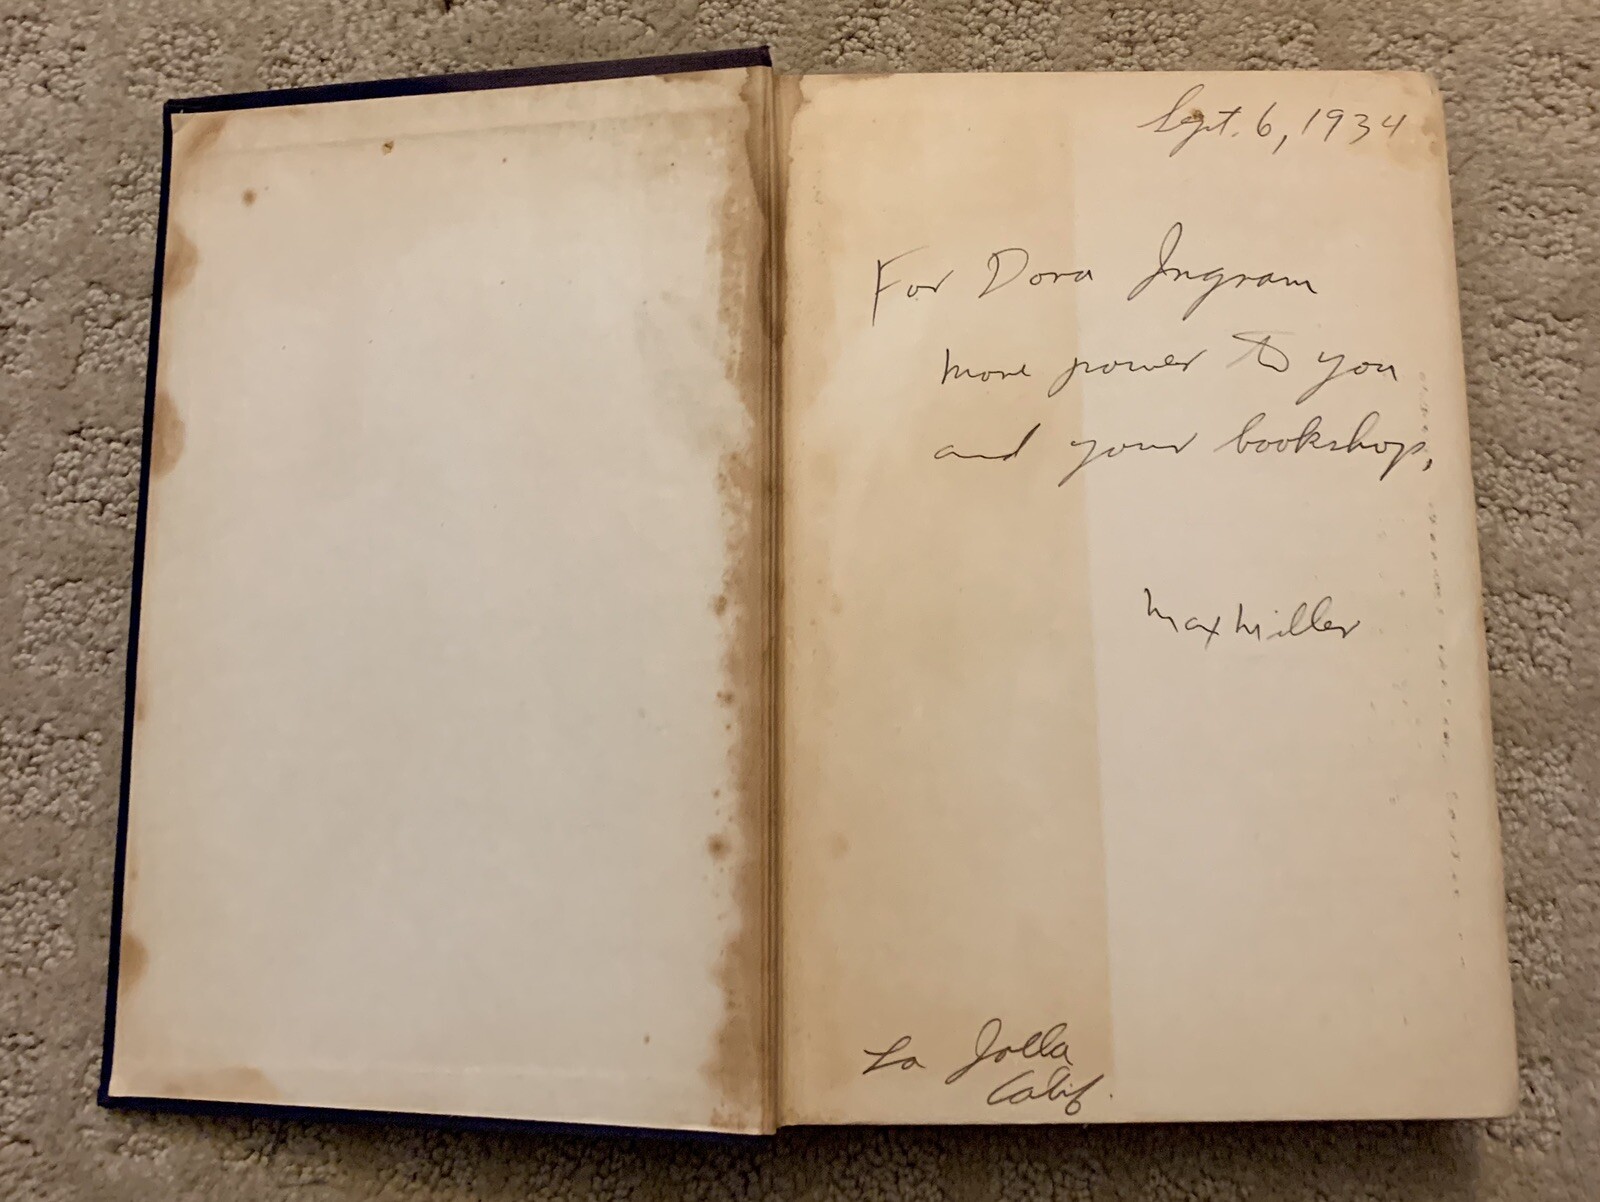 Sept. 6, 1934
For Dora Ingram
more power to you
and your bookshop,
Max Miller
La Jolla
Calif.